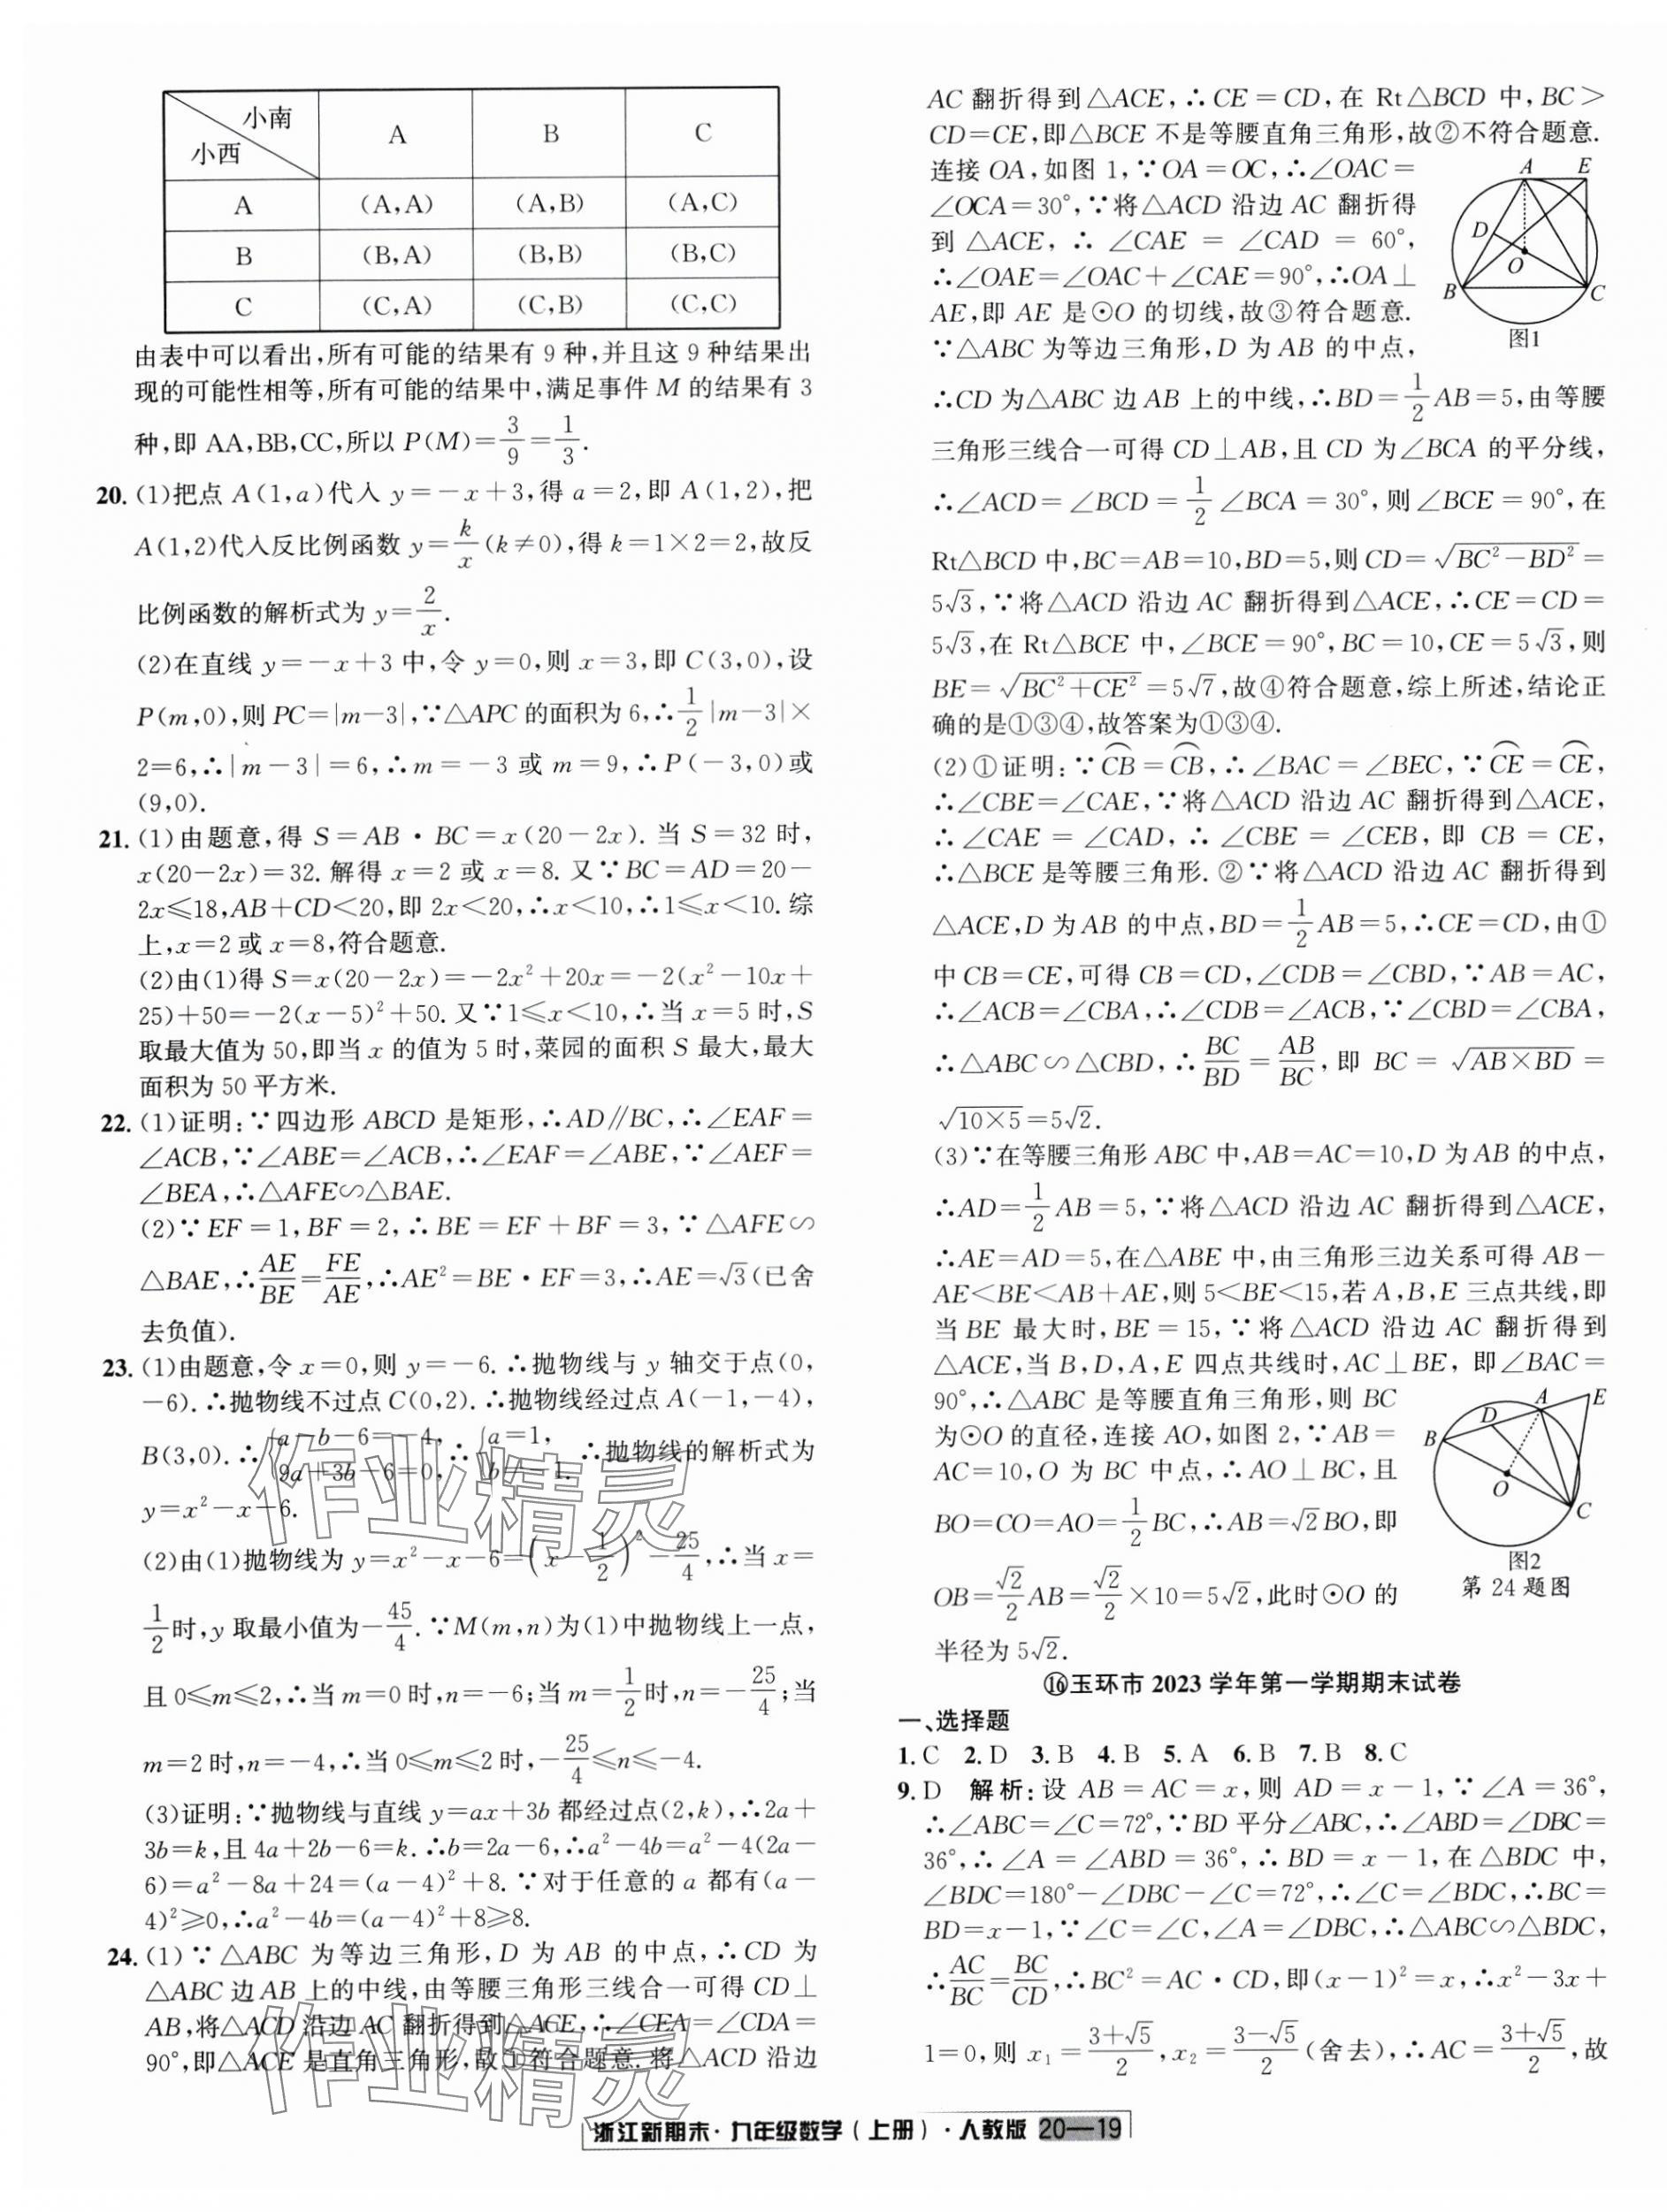 小南
小西
A B C
A (A,A) (A,B) (A,C)
B (B,A) (B,B) (B,C)
C (C,A) (C,B) (C,C)
由表中可以看出,所有可能的结果有 9 种,并且这 9 种结果出
现的可能性相等,所有可能的结果中,满足事件 M 的结果有 3
种,即 AA,BB,CC,所以 P(M)=3/9=1/3.
20. (1)把点 A(1,a)代入 y=-x+3,得 a=2,即 A(1,2),把
A(1,2)代入反比例函数 y=k/x(k≠0),得 k=1×2=2,故反
比例函数的解析式为 y=2/x.
(2)在直线 y=-x+3 中,令 y=0,则 x=3,即 C(3,0),设
P(m,0),则 PC=|m-3|,∵△APC 的面积为 6,∴1/2|m-3|×
2=6,∴|m-3|=6,∴m=-3 或 m=9,∴P(-3,0)或
(9,0).
21. (1)由题意,得 S=AB·BC=x(20-2x). 当 S=32 时,
x(20-2x)=32. 解得 x=2 或 x=8. 又∵BC=AD=20-
2x≤18,AB+CD<20,即 2x<20,∴x<10,∴1≤x<10. 综
上,x=2 或 x=8,符合题意.
(2)由(1)得 S=x(20-2x)=-2x²+20x=-2(x²-10x+
25)+50=-2(x-5)²+50. 又∵1≤x<10,∴当 x=5 时,S
取最大值为 50,即当 x 的值为 5 时,菜园的面积 S 最大,最大
面积为 50 平方米.
22. (1)证明:∵四边形 ABCD 是矩形,∴AD∥BC,∴∠EAF=
∠ACB,∵∠ABE=∠ACB,∴∠EAF=∠ABE,∵∠AEF=
∠BEA,∴△AFE∽△BAE.
(2)∵EF=1,BF=2,∴BE=EF+BF=3,∵△AFE∽
△BAE,∴AE/BE=FE/AE,∴AE²=BE·EF=3,∴AE=√3(已舍
去负值).
23. (1)由题意,令 x=0,则 y=-6. ∴抛物线与 y 轴交于点(0,
-6). ∴抛物线不过点 C(0,2). ∴抛物线经过点 A(-1,-4),
B(3,0). ∴{a-b-6=-4, 9a+3b-6=0, ∴{a=1, b=-1. ∴抛物线的解析式为
y=x²-x-6.
(2)由(1)抛物线为 y=x²-x-6=(x-1/2)²-25/4,∴当 x=
1/2时,y 取最小值为-45/4. ∵M(m,n)为(1)中抛物线上一点,
且 0≤m≤2,∴当 m=0 时,n=-6;当 m=1/2时,n=-25/4;当
m=2 时,n=-4,∴当 0≤m≤2 时,-25/4≤n≤-4.
(3)证明:∵抛物线与直线 y=ax+3b 都经过点(2,k),∴2a+
3b=k,且 4a+2b-6=k. ∴b=2a-6,∴a²-4b=a²-4(2a-
6)=a²-8a+24=(a-4)²+8. ∵对于任意的 a 都有(a-
4)²≥0,∴a²-4b=(a-4)²+8≥8.
24. (1)∵△ABC 为等边三角形,D 为 AB 的中点,∴CD 为
△ABC 边 AB 上的中线,由等腰三角形三线合一可得 CD⊥
AB,将△ACD 沿边 AC 翻折得到△ACE,∴∠CEA=∠CDA=
90°,即△ACE 是直角三角形,故①符合题意. 将△ACD 沿边
AC 翻折得到△ACE,∴CE=CD,在 Rt△BCD 中,BC>
CD=CE,即△BCE 不是等腰直角三角形,故②不符合题意.
连接 OA,如图 1,∵OA=OC,∴∠OAC=
∠OCA=30°,∵将△ACD 沿边 AC 翻折得
到 △ACE,∴∠CAE=∠CAD=60°,
∴∠OAE=∠OAC+∠CAE=90°,∴OA⊥
AE,即 AE 是⊙O 的切线,故③符合题意.
∵△ABC 为等边三角形,D 为 AB 的中点,
A E D O B C
图1
∴CD 为△ABC 边 AB 上的中线,∴BD=1/2AB=5,由等腰
三角形三线合一可得 CD⊥AB,且 CD 为∠BCA 的平分线,
∴∠ACD=∠BCD=1/2∠BCA=30°,则∠BCE=90°,在
Rt△BCD 中,BC=AB=10,BD=5,则 CD=√(BC²-BD²)=
5√3,∵将△ACD 沿边 AC 翻折得到△ACE,∴CE=CD=
5√3,在 Rt△BCE 中,∠BCE=90°,BC=10,CE=5√3,则
BE=√(BC²+CE²)=5√7,故④符合题意,综上所述,结论正
确的是①③④,故答案为①③④.
(2)①证明:∵⌒CB=⌒CB,∴∠BAC=∠BEC,∵⌒CE=⌒CE,
∴∠CBE=∠CAE,∵将△ACD 沿边 AC 翻折得到△ACE,
∴∠CAE=∠CAD,∴∠CBE=∠CEB,即 CB=CE,
∴△BCE 是等腰三角形. ②∵将△ACD 沿边 AC 翻折得到
△ACE,D 为 AB 的中点,BD=1/2AB=5,∴CE=CD,由①
中 CB=CE,可得 CB=CD,∠CDB=∠CBD,∵AB=AC,
∴∠ACB=∠CBA,∴∠CDB=∠ACB,∵∠CBD=∠CBA,
∴△ABC∽△CBD,∴BC/BD=AB/BC,即 BC=√(AB×BD)=
√(10×5)=5√2.
(3)∵在等腰三角形 ABC 中,AB=AC=10,D 为 AB 的中点,
∴AD=1/2AB=5,∵将△ACD 沿边 AC 翻折得到△ACE,
∴AE=AD=5,在△ABE 中,由三角形三边关系可得 AB-
AE<BE<AB+AE,则 5<BE<15,若 A,B,E 三点共线,即
当 BE 最大时,BE=15,∵将△ACD 沿边 AC 翻折得到
△ACE,当 B,D,A,E 四点共线时,AC⊥BE,即∠BAC=
90°,∴△ABC 是等腰直角三角形,则 BC
为⊙O 的直径,连接 AO,如图 2,∵AB=
AC=10,O 为 BC 中点,∴AO⊥BC,且
BO=CO=AO=1/2BC,∴AB=√2BO,即
OB=√2/2AB=√2/2×10=5√2,此时⊙O 的
半径为 5√2.
A E D B O C
图2
第 24 题图
⑯玉环市 2023 学年第一学期期末试卷
一、选择题
1. C 2. D 3. B 4. B 5. A 6. B 7. B 8. C
9. D 解析:设 AB=AC=x,则 AD=x-1,∵∠A=36°,
∴∠ABC=∠C=72°,∵BD 平分∠ABC,∴∠ABD=∠DBC=
36°,∴∠A=∠ABD=36°,∴BD=x-1,在△BDC 中,
∠BDC=180°-∠DBC-∠C=72°,∴∠C=∠BDC,∴BC=
BD=x-1,∵∠C=∠C,∠A=∠DBC,∴△ABC∽△BDC,
∴AC/BC=BC/CD,∴BC²=AC·CD,即(x-1)²=x,∴x²-3x+
1=0,则 x₁=(3+√5)/2,x₂=(3-√5)/2(舍去),∴AC=(3+√5)/2,故
浙江新期末·九年级数学(上册)·人教版 20—19
作业精灵
作业精灵